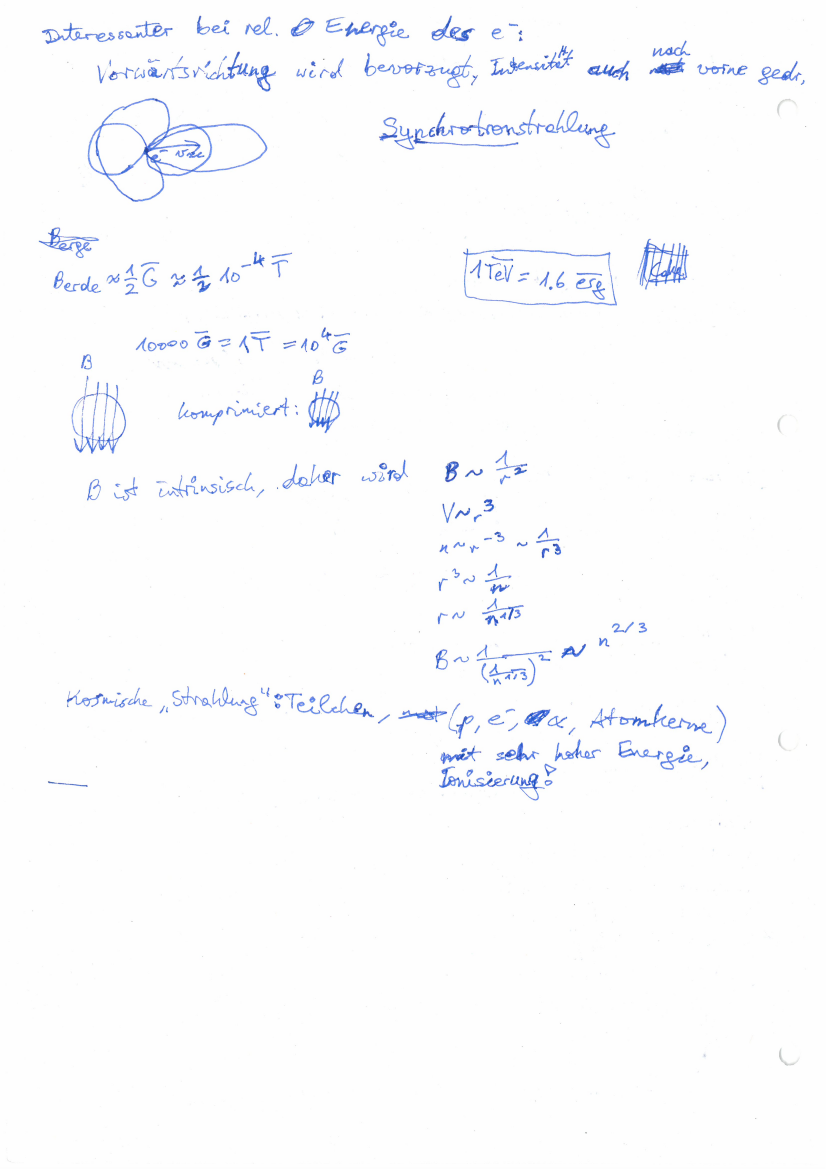 Interessanter bei rel. Energie des e⁻:
Vorwärtsrichtung wird bevorzugt, Intensität auch nach vorne gedr.
e⁻ v≈c
Synchrotronstrahlung
Berge
Berde ≈ 1/2 G ≈ 1/2 10⁻⁴ T
1 TeV = 1.6 erg
10000 G = 1T = 10⁴ G
B
B
komprimiert:
B ist intrinsisch, daher wird B ~ 1/r²
V ~ r³
n ~ r⁻³ ~ 1/r³
r³ ~ 1/n
r ~ 1/n^1/3
B ~ 1/(1/n^1/3)² ~ n^2/3
Kosmische „Strahlung“: Teilchen, (p, e⁻, α, Atomkerne)
mit sehr hoher Energie,
Ionisierung!